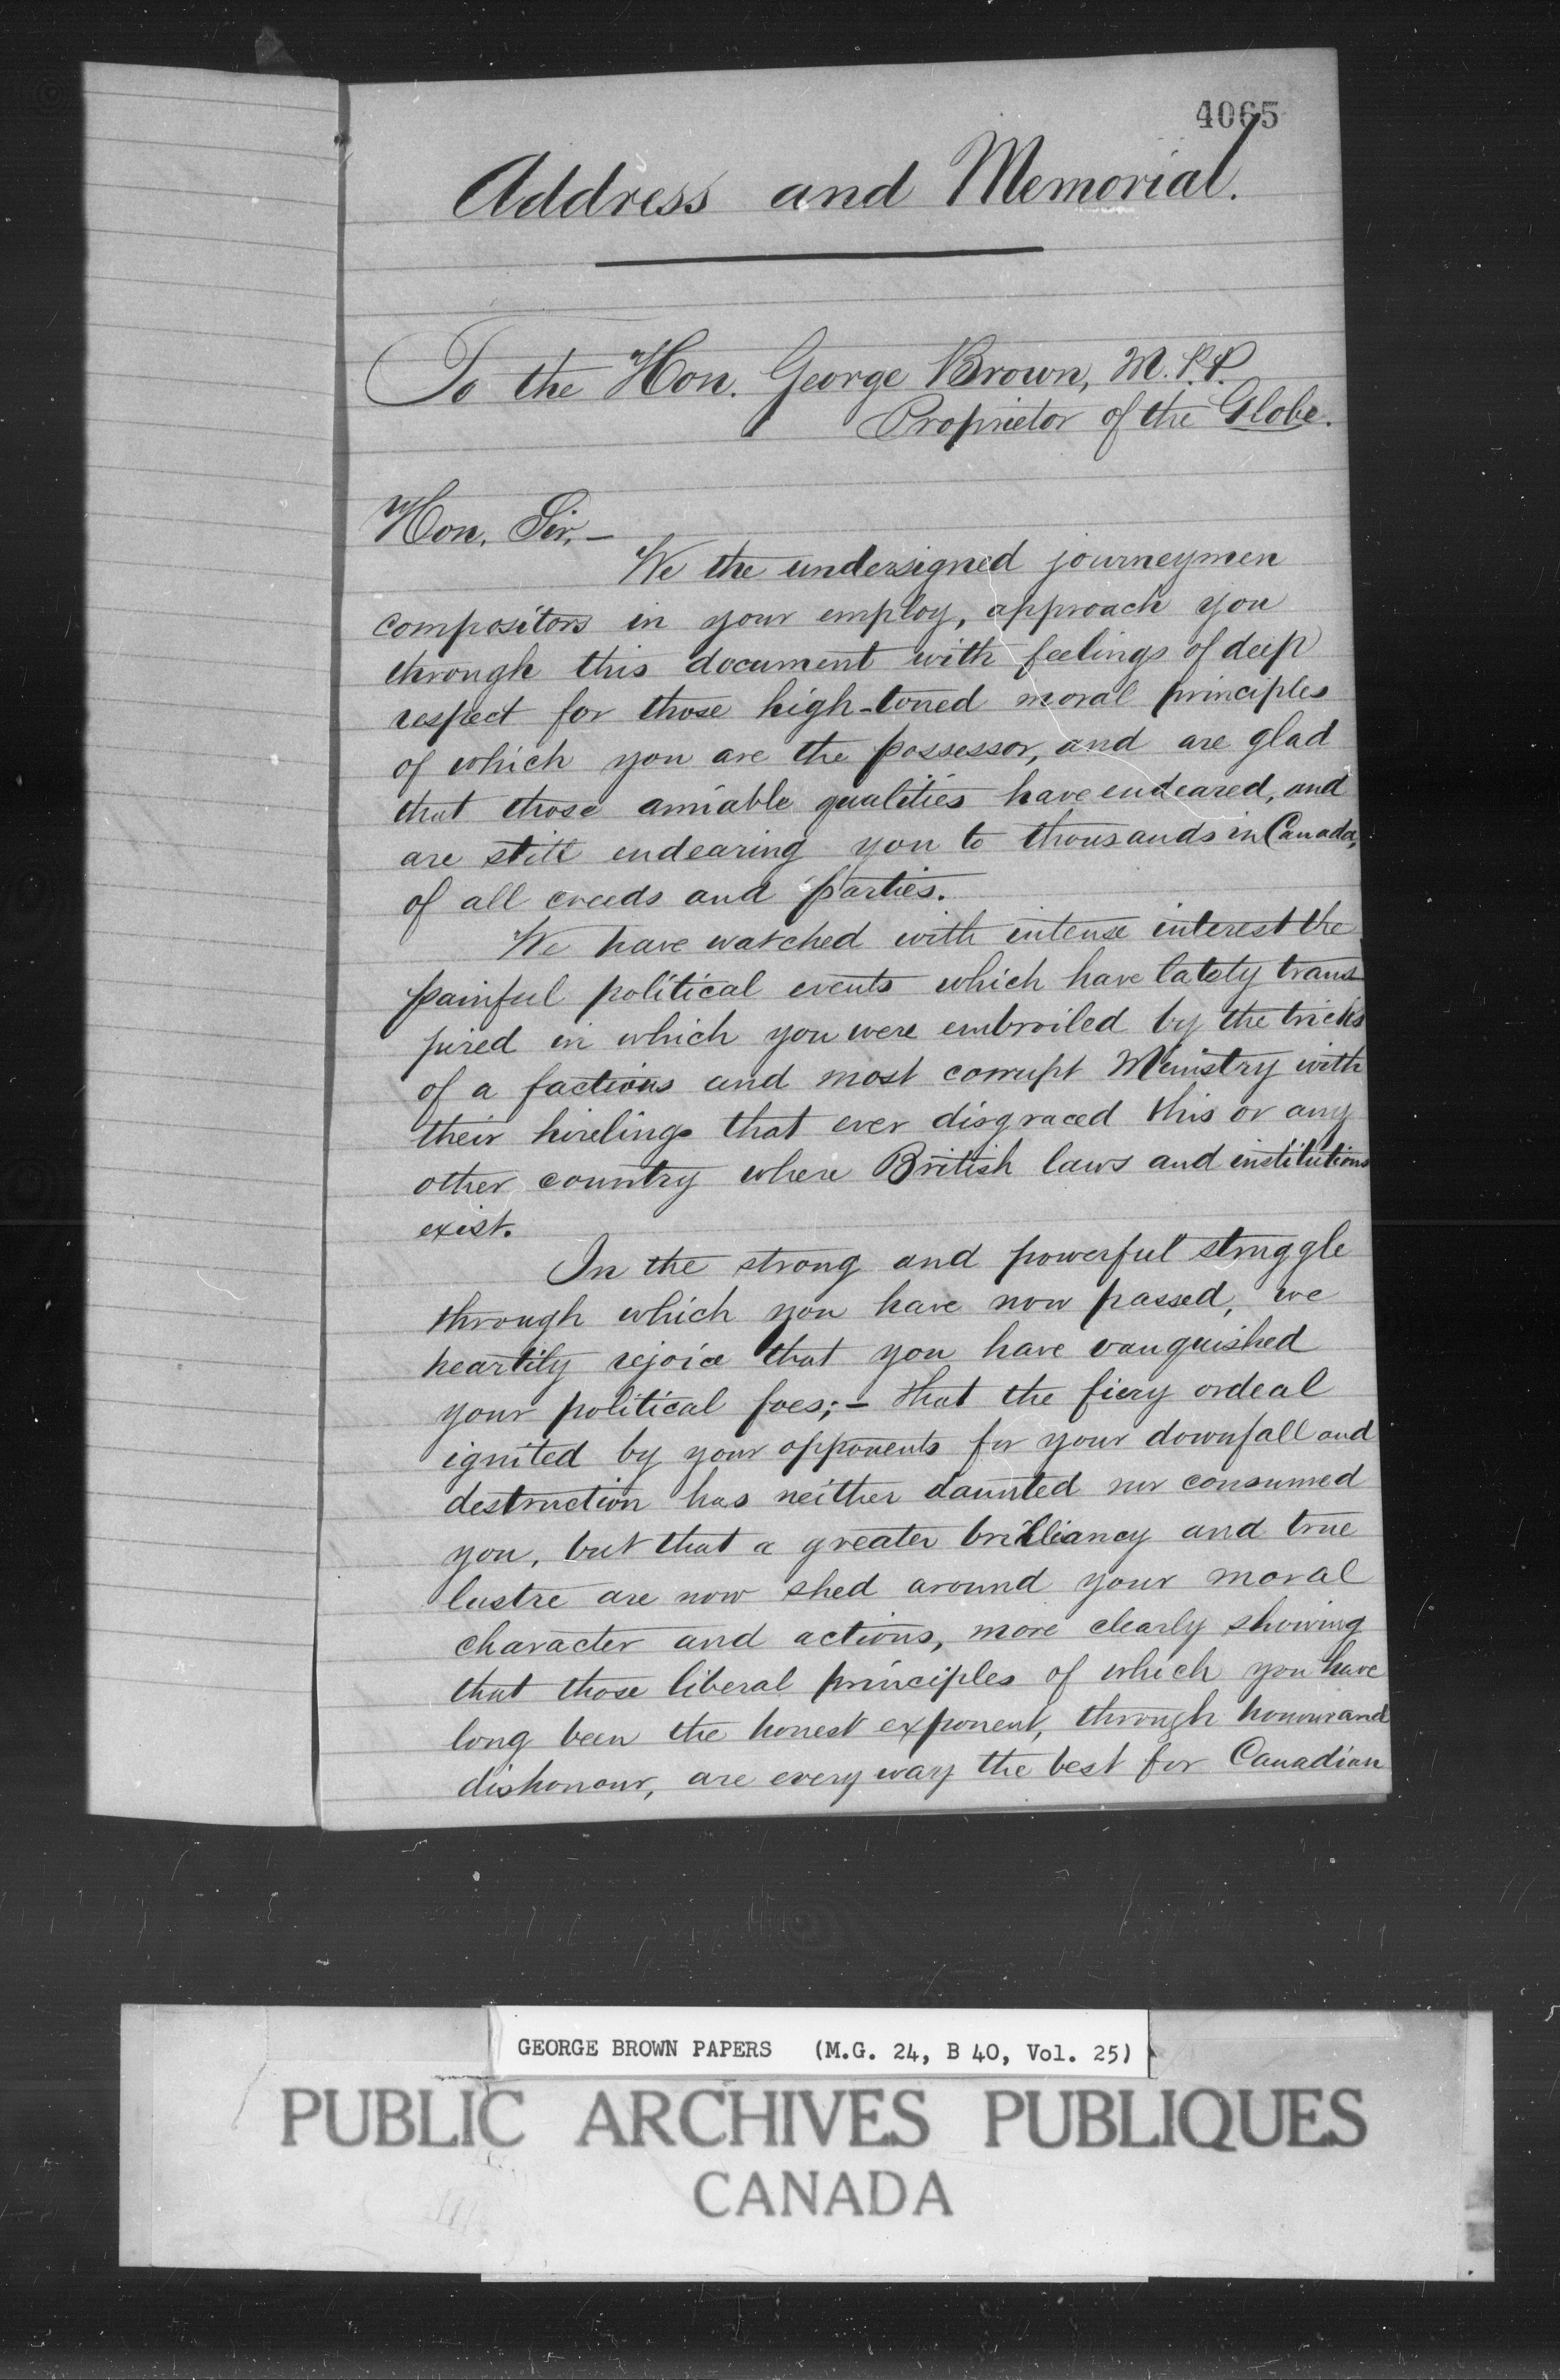 4065
Address and Memorial.
To the Hon. George Brown, M.P.P.
Proprietor of the Globe.
Hon. Sir,—
We the undersigned journeymen
compositors in your employ, approach you
through this document with feelings of deep
respect for those high-toned moral principles
of which you are the possessor, and are glad
that those amiable qualities have endeared, and
are still endearing you to thousands in Canada,
of all creeds and parties.
We have watched with intense interest the
painful political events which have lately trans
pired in which you were embroiled by the tricks
of a factious and most corrupt Ministry with
their hirelings that ever disgraced this or any
other country where British laws and institutions
exist.
In the strong and powerful struggle
through which you have now passed, we
heartily rejoice that you have vanquished
your political foes;— that the fiery ordeal
ignited by your opponents for your downfall and
destruction has neither daunted nor consumed
you, but that a greater brilliancy and true
lustre are now shed around your moral
character and actions, more clearly showing
that those liberal principles of which you have
long been the honest exponent, through honour and
dishonour, are every way the best for Canadian
GEORGE BROWN PAPERS (M.G. 24, B 40, Vol. 25)
PUBLIC ARCHIVES PUBLIQUES
CANADA